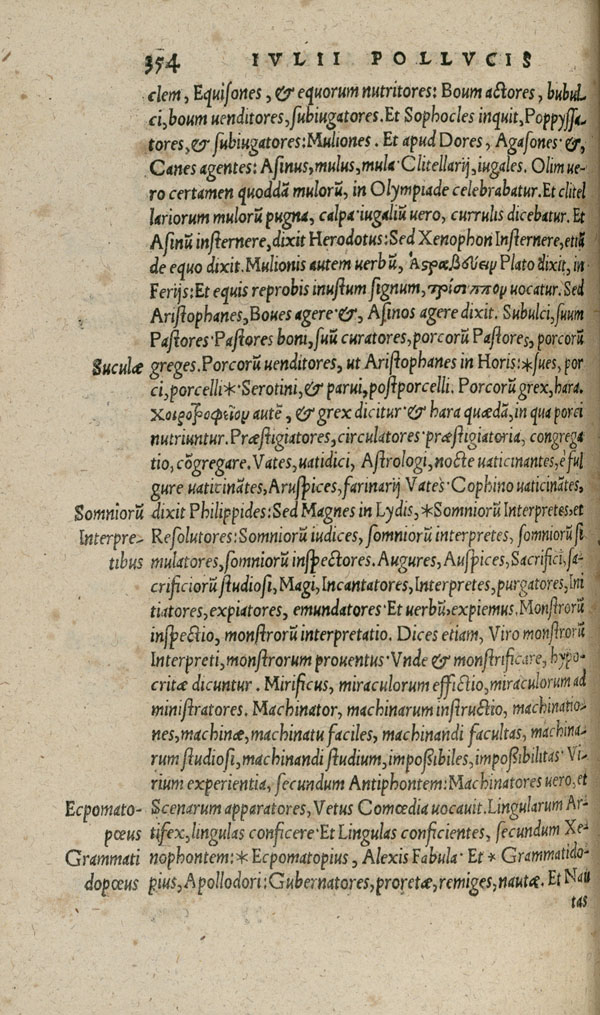 354 IVLII POLLVCIS
clem, Equisones, & equorum nutritores: Boum actores, bubul
ci, boum uenditores, subiugatores. Et Sophocles inquit, Poppyssa-
tores, & subiugatores: Muliones. Et apud Dores, Agasones &,
Canes agentes: Asinus, mulus, mula Clitellarij, iugales. Olim ue-
ro certamen quoddã mulorũ, in Olympiade celebrabatur. Et clitel
lariorum mulorũ pugna, calpa iugaliũ uero, currulis dicebatur. Et
Asinũ insternere, dixit Herodotus: Sed Xenophon Insternere, etiã
de equo dixit. Mulionis autem uerbũ, Ἀςραβδύειν Plato dixit, in
Ferijs: Et equis reprobis inustum signum, τρίσιππον uocatur. Sed
Aristophanes, Boues agere &, Asinos agere dixit. Subulci, suum
Pastores Pastores boni, suũ curatores, porcorũ Pastores, porcorũ
Suculæ greges. Porcorũ uenditores, ut Aristophanes in Horis: *sues, por
ci, porcelli* Serotini, & parui, postporcelli. Porcorũ grex, hara.
Χοιροτροφεῖον autẽ, & grex dicitur & hara quædã, in qua porci
nutriuntur. Præstigiatores, circulatores præstigiatoria, congrega
tio, cõgregare. Vates, uatidici, Astrologi, nocte uaticinantes, è ful
gure uaticinãtes, Aruspices, farinarij Vates Cophino uaticinãtes,
Somniorũ dixit Philippides: Sed Magnes in Lydis, *Somniorũ Interpretes et
Interpre- Resolutores: Somniorũ iudices, somniorũ interpretes, somniorũ si
tibus mulatores, somniorũ inspectores. Augures, Auspices, Sacrifici, sa-
crificiorũ studiosi, Magi, Incantatores, Interpretes, purgatores, Ini
tiatores, expiatores, emundatores Et uerbũ, expiemus. Monstrorũ
inspectio, monstrorũ interpretatio. Dices etiam, Viro monstrorũ
Interpreti, monstrorum prouentus Vnde & monstrificare, hypo-
critæ dicuntur. Mirificus, miraculorum effictio, miraculorum ad
ministratores. Machinator, machinarum instructio, machinatio-
nes, machinæ, machinatu faciles, machinandi facultas, machina-
rum studiosi, machinandi studium, impoßibiles, impoßibilitas Vi-
rium experientia, secundum Antiphontem: Machinatores uero, et
Ecpomato- Scenarum apparatores, Vetus Comœdia uocauit. Lingularum Ar-
pœus tifex, lingulas conficere Et Lingulas conficientes, secundum Xe-
Grammati nophontem: * Ecpomatopius, Alexis Fabula Et * Grammatido-
dopœus pius, Apollodori: Gubernatores, proretæ, remiges, nautæ. Et Nau
tas